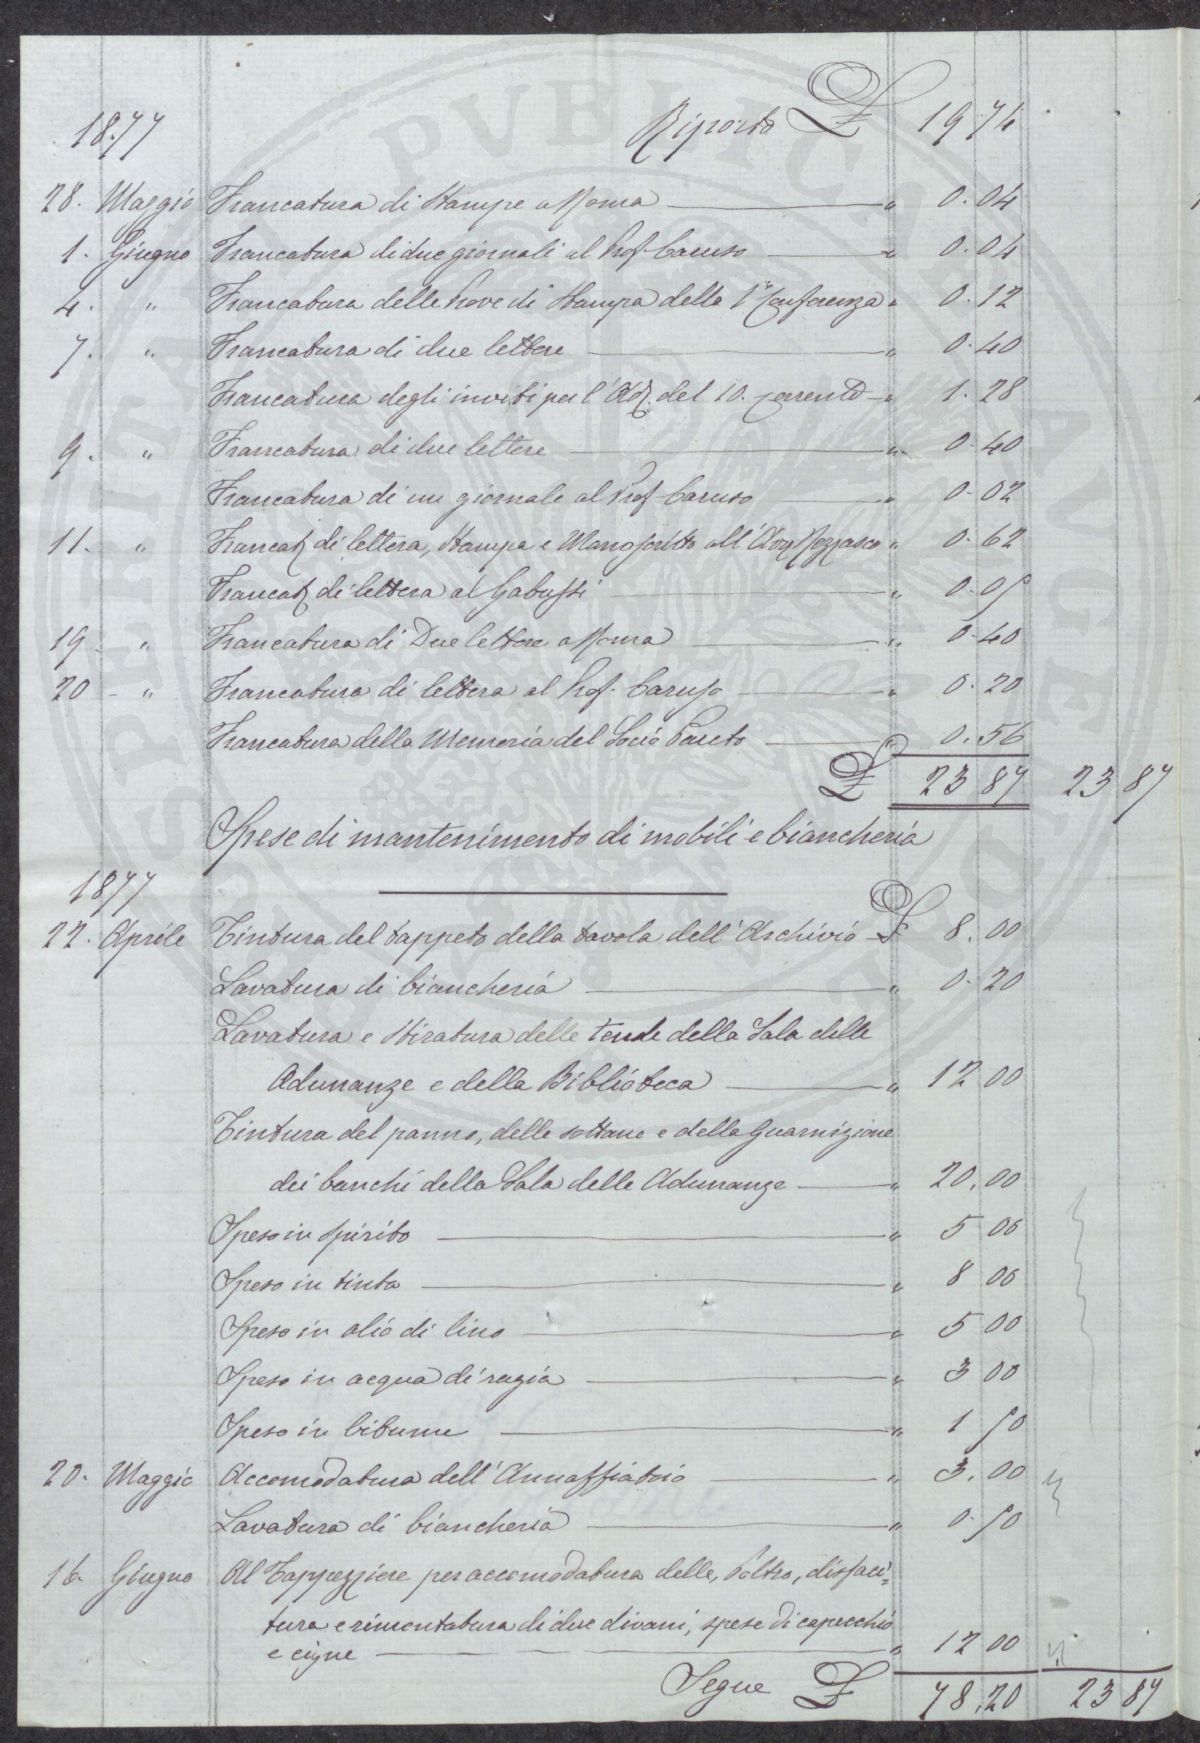 1877 Riporto £ 19 74
28. Maggio Francatura di Stampe a Roma " 0. 04
1. Giugno Francatura di due giornali al Prof. Caruso " 0. 04
4. " Francatura delle Prove di Stampa della 1a Conferenza " 0. 12
7. " Francatura di due lettere " 0. 40
Francatura degli inviti per l'Ad. del 10. corrente " 1. 28
9. " Francatura di due lettere " 0. 40
Francatura di un giornale al Prof. Caruso " 0. 02
11. " Francat. di lettera, Stampa e Manoscritto all' " 0. 62
Francat. di lettera al Gabussi " 0. 05
19 " Francatura di Due lettere a Roma " 0. 40
20 " Francatura di lettera al Prof. Caruso " 0. 20
Francatura della Memoria del Socio Pareto " 0. 56
£ 23 87 23 87
Spese di mantenimento di mobili e biancheria
1877
22. Aprile Tintura del tappeto della tavola dell'Archivio £ 8. 00
Lavatura di biancheria " 0. 20
Lavatura e Stiratura delle tende della Sala delle
Adunanze e della Biblioteca " 12 00
Tintura del panno, delle sottane e della Guarnizione
dei banchi della Sala delle Adunanze " 20. 00
Speso in spirito " 5 00
Speso in tinta " 8 00
Speso in olio di lino " 5 00
Speso in acqua di ragia " 3 00
Speso in bitume " 1 50
20. Maggio Accomodatura dell'Annaffiatoio " 3. 00
Lavatura di biancheria " 0. 50
16. Giugno Al Tappezziere per accomodatura delle, disfaci=
tura e rimontatura di due divani, spese di capecchio
e cigne " 12 00
Segue £ 78. 20 23 87
PVBLIC